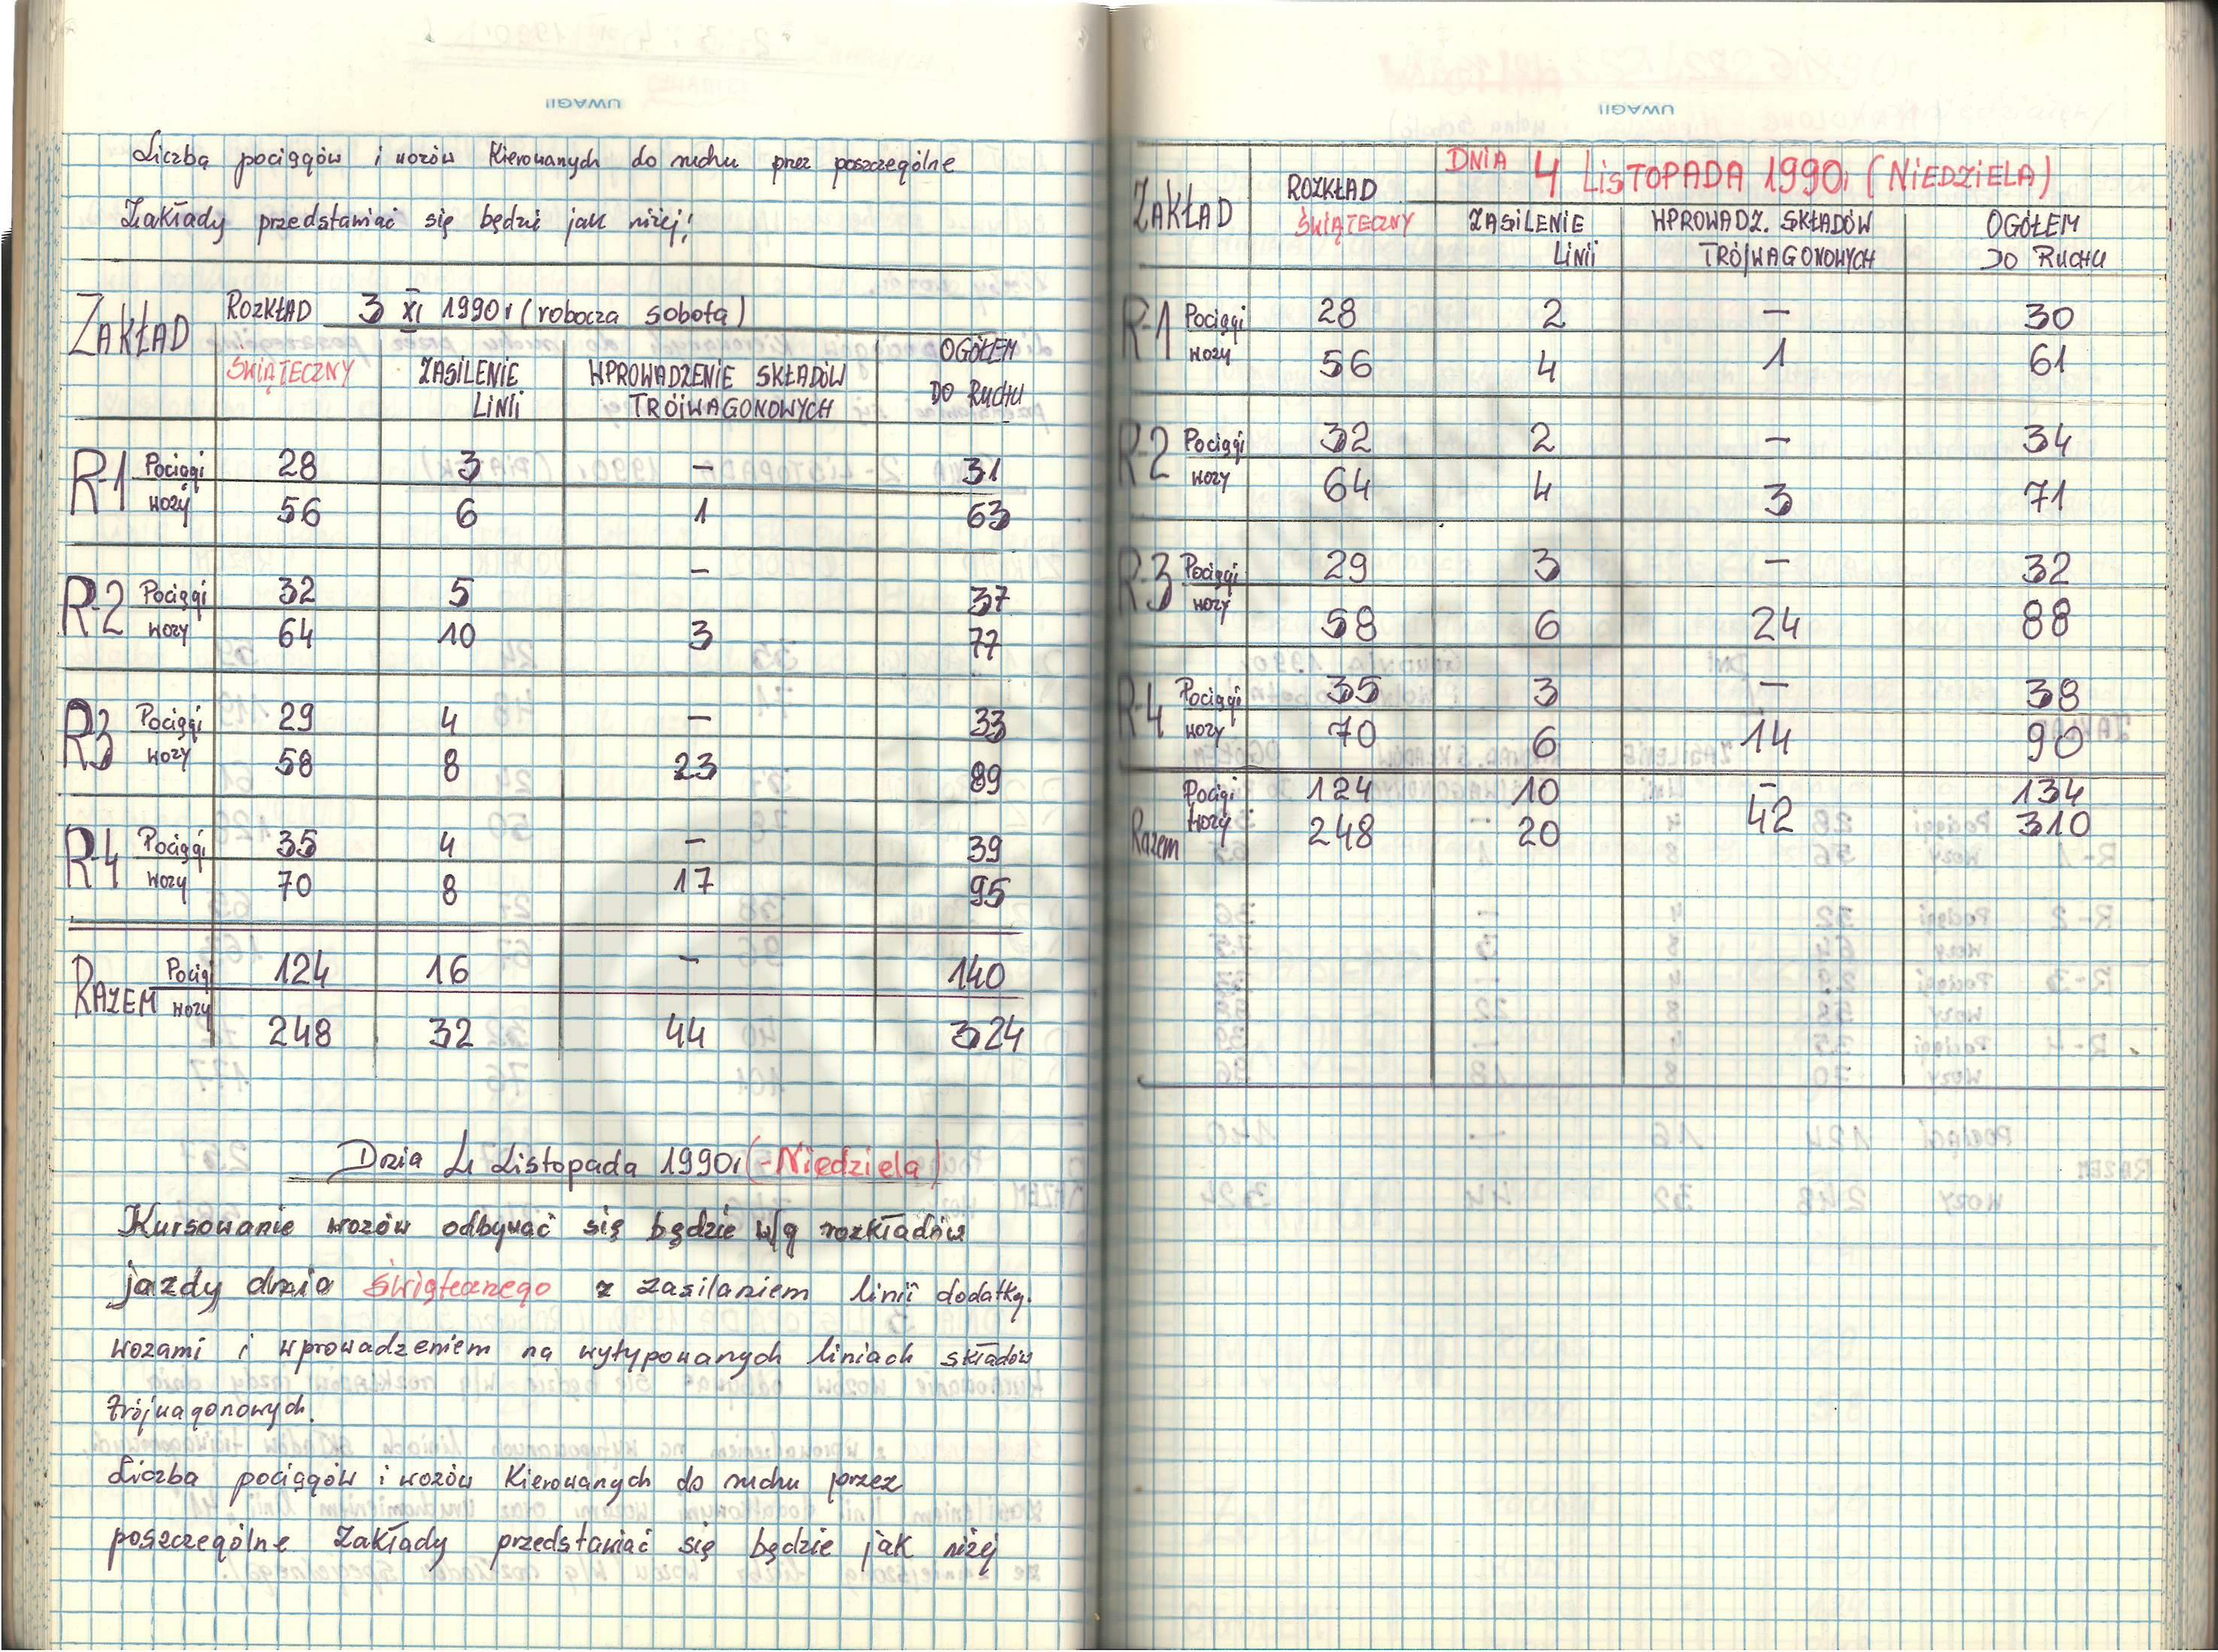 UWAGI!
Liczba pociągów i wozów kierowanych do ruchu przez poszczególne
Zakłady przedstawiać się będzie jak niżej:
ZAKŁAD ROZKŁAD 3 XI 1990r (robocza sobota)
ŚWIĄTECZNY ZASILENIE LINII WPROWADZENIE SKŁADÓW TRÓJWAGONOWYCH OGÓŁEM DO RUCHU
R-1 Pociągi 28 3 – 31
wozy 56 6 1 63
R-2 Pociągi 32 5 – 37
wozy 64 10 3 77
R3 Pociągi 29 4 – 33
wozy 58 8 23 89
R-4 Pociągi 35 4 – 39
wozy 70 8 17 95
RAZEM Pociągi 124 16 – 140
wozy 248 32 44 324
Dnia 4 Listopada 1990r (-Niedziela)
Kursowanie wozów odbywać się będzie w/g rozkładów
jazdy dnia świątecznego z zasilaniem linii dodatk.
wozami i wprowadzeniem na wytypowanych liniach składów
trójwagonowych.
Liczba pociągów i wozów kierowanych do ruchu przez
poszczególne Zakłady przedstawiać się będzie jak niżej
UWAGI!
ZAKŁAD ROZKŁAD ŚWIĄTECZNY DNIA 4 LISTOPADA 1990r (NIEDZIELA)
ZASILENIE LINII WPROWADZ. SKŁADÓW TRÓJWAGONOWYCH OGÓŁEM DO RUCHU
R-1 Pociągi 28 2 – 30
wozy 56 4 1 61
R-2 Pociągi 32 2 – 34
wozy 64 4 3 71
R-3 Pociągi 29 3 – 32
wozy 58 6 24 88
R-4 Pociągi 35 3 – 38
wozy 70 6 14 90
Razem Pociągi 124 10 – 134
wozy 248 20 42 310